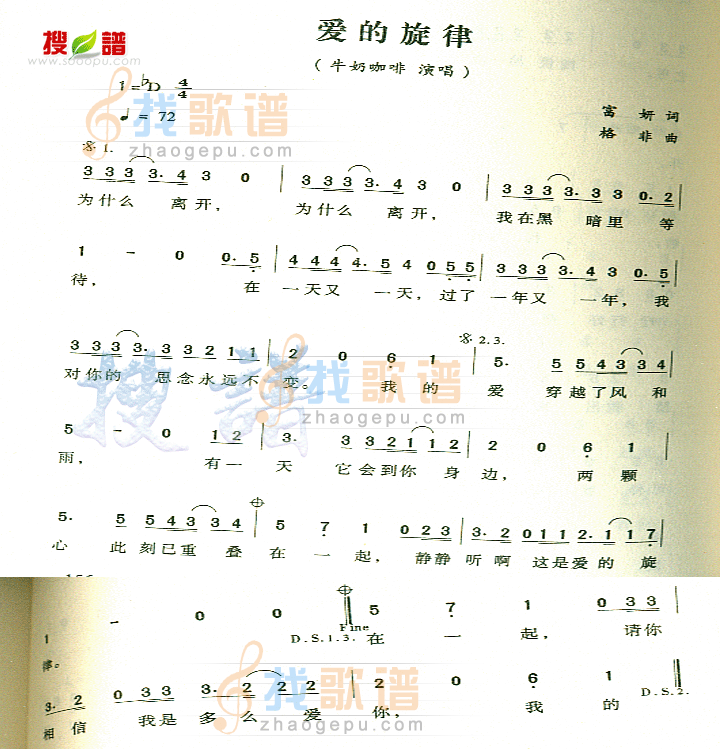 搜谱
www.sooopu.com
爱的旋律
(牛奶咖啡 演唱)
1=♭D 4/4
♩= 72
富 妍 词
格 非 曲
找歌谱
zhaogepu.com
𝄋 1.
3 3 3 3. 4 3 0 | 3 3 3 3. 4 3 0 | 3 3 3 3. 3 3 0. 2 |
为什么 离开, 为什么 离开, 我在黑 暗里 等
1 - 0 0. 5 | 4 4 4 4. 5 4 0 5 5 | 3 3 3 3. 4 3 0. 5 |
待, 在 一天又 一天, 过了 一年又 一年, 我
3 3 3 3. 3 3 2 1 1 | 2 0 6 1 | 5. 5 5 4 3 3 4 |
𝄋 2.3.
对你的 思念永远不 变。 我 的 爱 穿越了风 和
搜谱
找歌谱
zhaogepu.com
5 - 0 1 2 | 3. 3 3 2 1 1 2 | 2 0 6 1 |
雨, 有一 天 它会到你 身 边, 两 颗
5. 5 5 4 3 3 4 | 5 7 1 0 2 3 | 3. 2 0 1 1 2. 1 1 7 |
心 此 刻已重 叠 在 一 起, 静静 听啊 这是爱的 旋
1 - 0 0 ‖ 5 7 1 0 3 3 |
Fine
D.S.1.3.
律。 在 一 起, 请你
3. 2 0 3 3 3. 2 2 2 | 2 0 6 1 ‖
D.S.2.
相信 我是 多么 爱 你, 我 的
找歌谱
zhaogepu.com